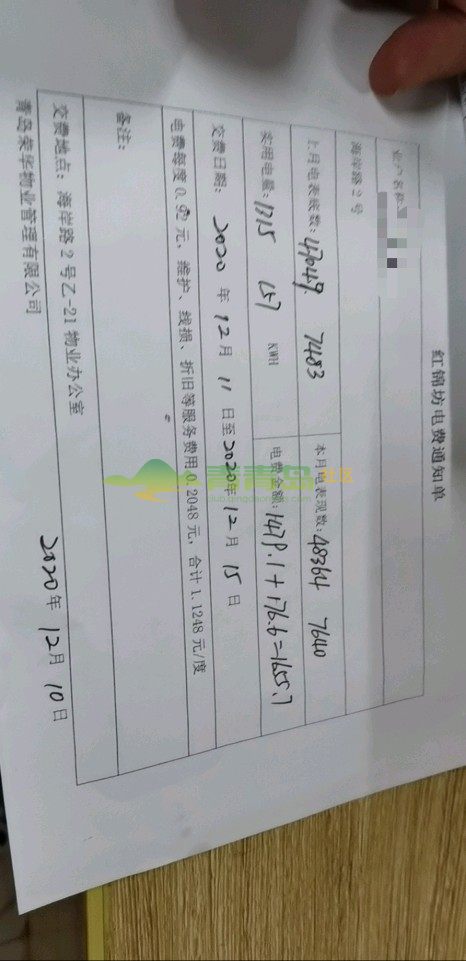 红锦坊电费通知单
业户名称:
海岸路2号
上月电表底数: 47049 7483 本月电表现数: 48364 7640
实用电量: 1315 157 KWH 电费金额: 1479.1+176.6=1655.7
交费日期: 2020年12月11日至2020年12月15日
电费每度0.92元、维护、线损、折旧等服务费用0.2048元,合计1.1248元/度
备注:
交费地点: 海岸路2号乙-21物业办公室
青岛荣华物业管理有限公司 2020年12月10日
青青岛社区
club.qingdaonews.com